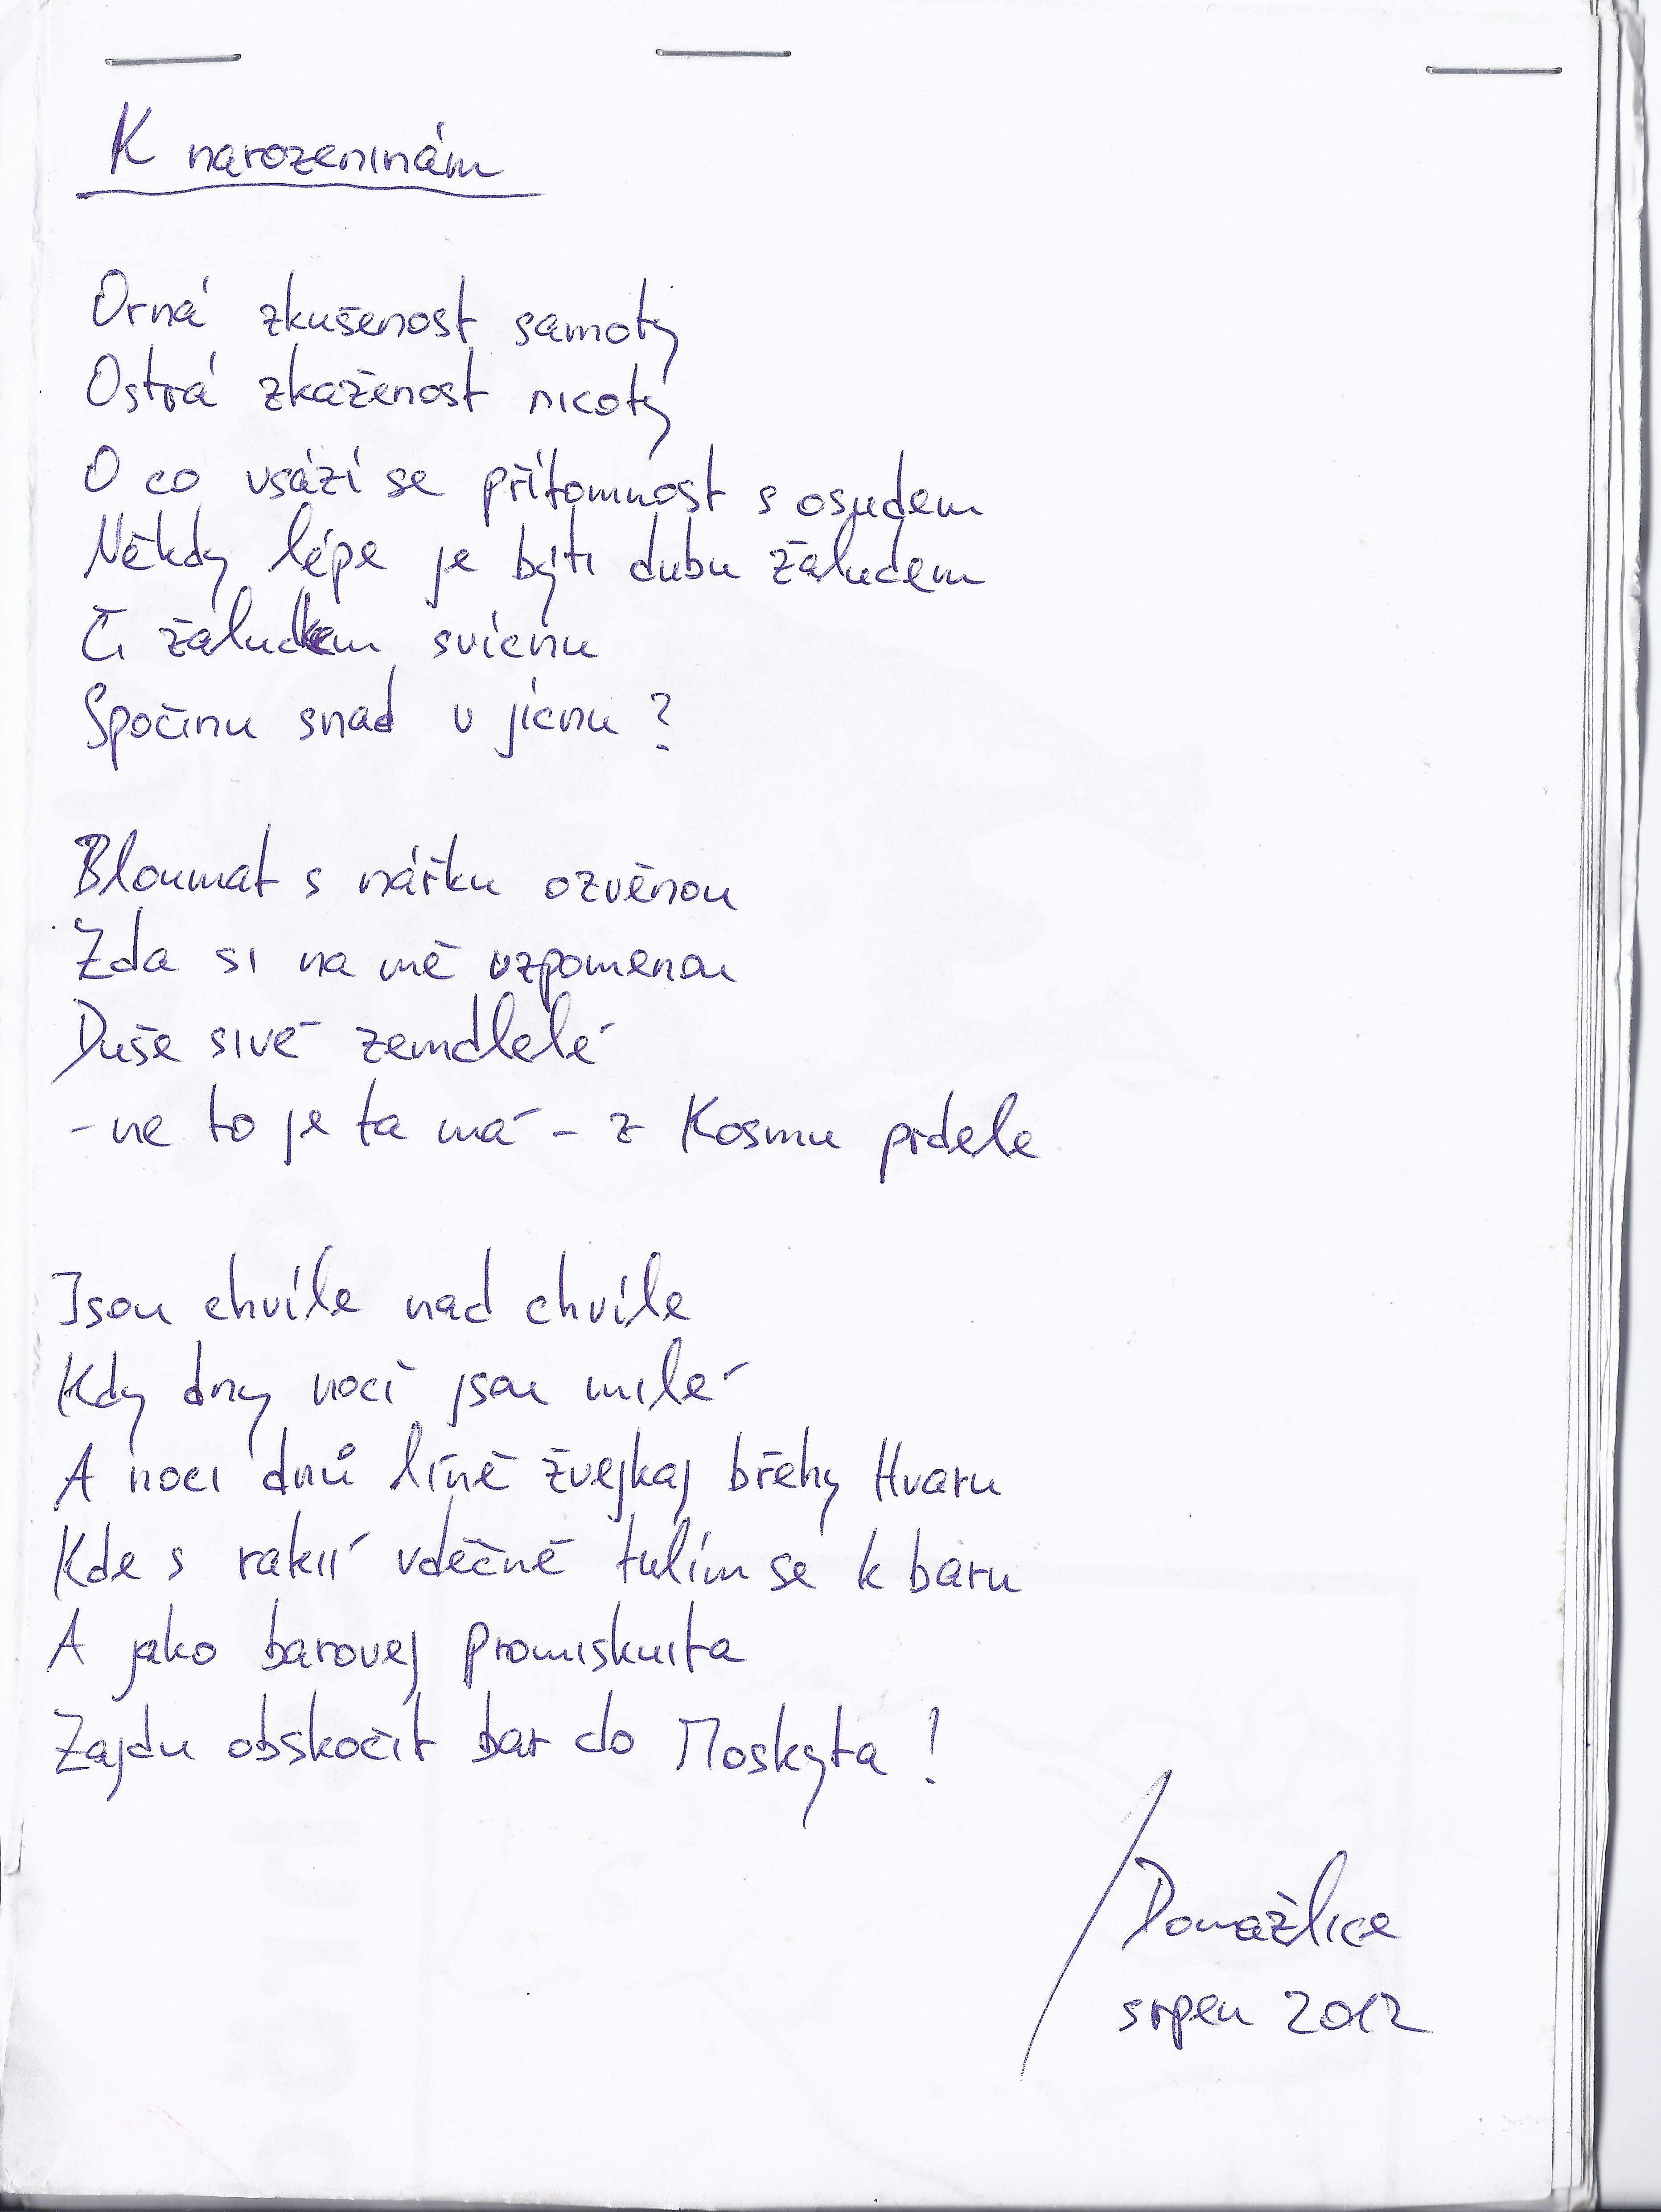 K narozeninám
Orná zkušenost samoty
Ostrá zkaženost nicoty
O co vsází se přítomnost s osudem
Někdy lépe je býti dubu žaludem
Či žaludkem svícnu
Spočinu snad v jícnu ?
Bloumat s nářku ozvěnou
Zda si na mě vzpomenou
Duše sivé zemdlelé
- ne to je ta má - z Kosmu prdele
Jsou chvíle nad chvíle
Kdy dny nocí jsou milé
A noci dnů líně žvejkaj břehy Hvaru
Kde s rakií vděčně tulím se k baru
A jako barovej promiskuita
Zajdu obskočit bar do Moskyta !
Domažlice
srpen 2012